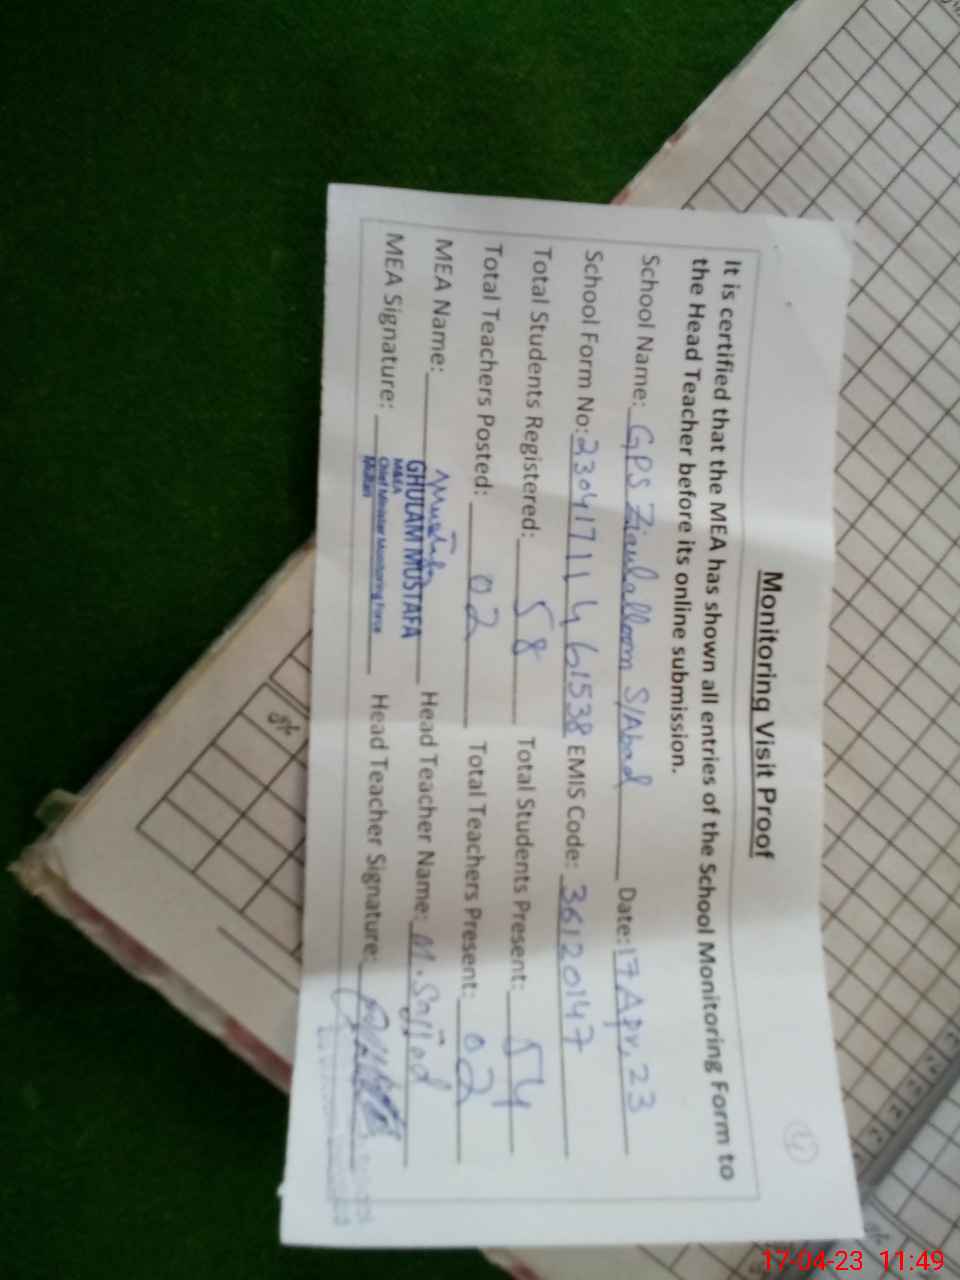 Monitoring Visit Proof
It is certified that the MEA has shown all entries of the School Monitoring Form to
the Head Teacher before its online submission.
School Name: GPS Ziaulalloom S/Abad Date: 17 Apr, 23
School Form No: 23041711461538 EMIS Code: 36120147
Total Students Registered: 58 Total Students Present: 54
Total Teachers Posted: 02 Total Teachers Present: 02
MEA Name: GHULAM MUSTAFA Head Teacher Name: M. Sajjad
M&EA
MEA Signature: Chief Minister Monitoring Force Head Teacher Signature:
Multan
17-04-23 11:49